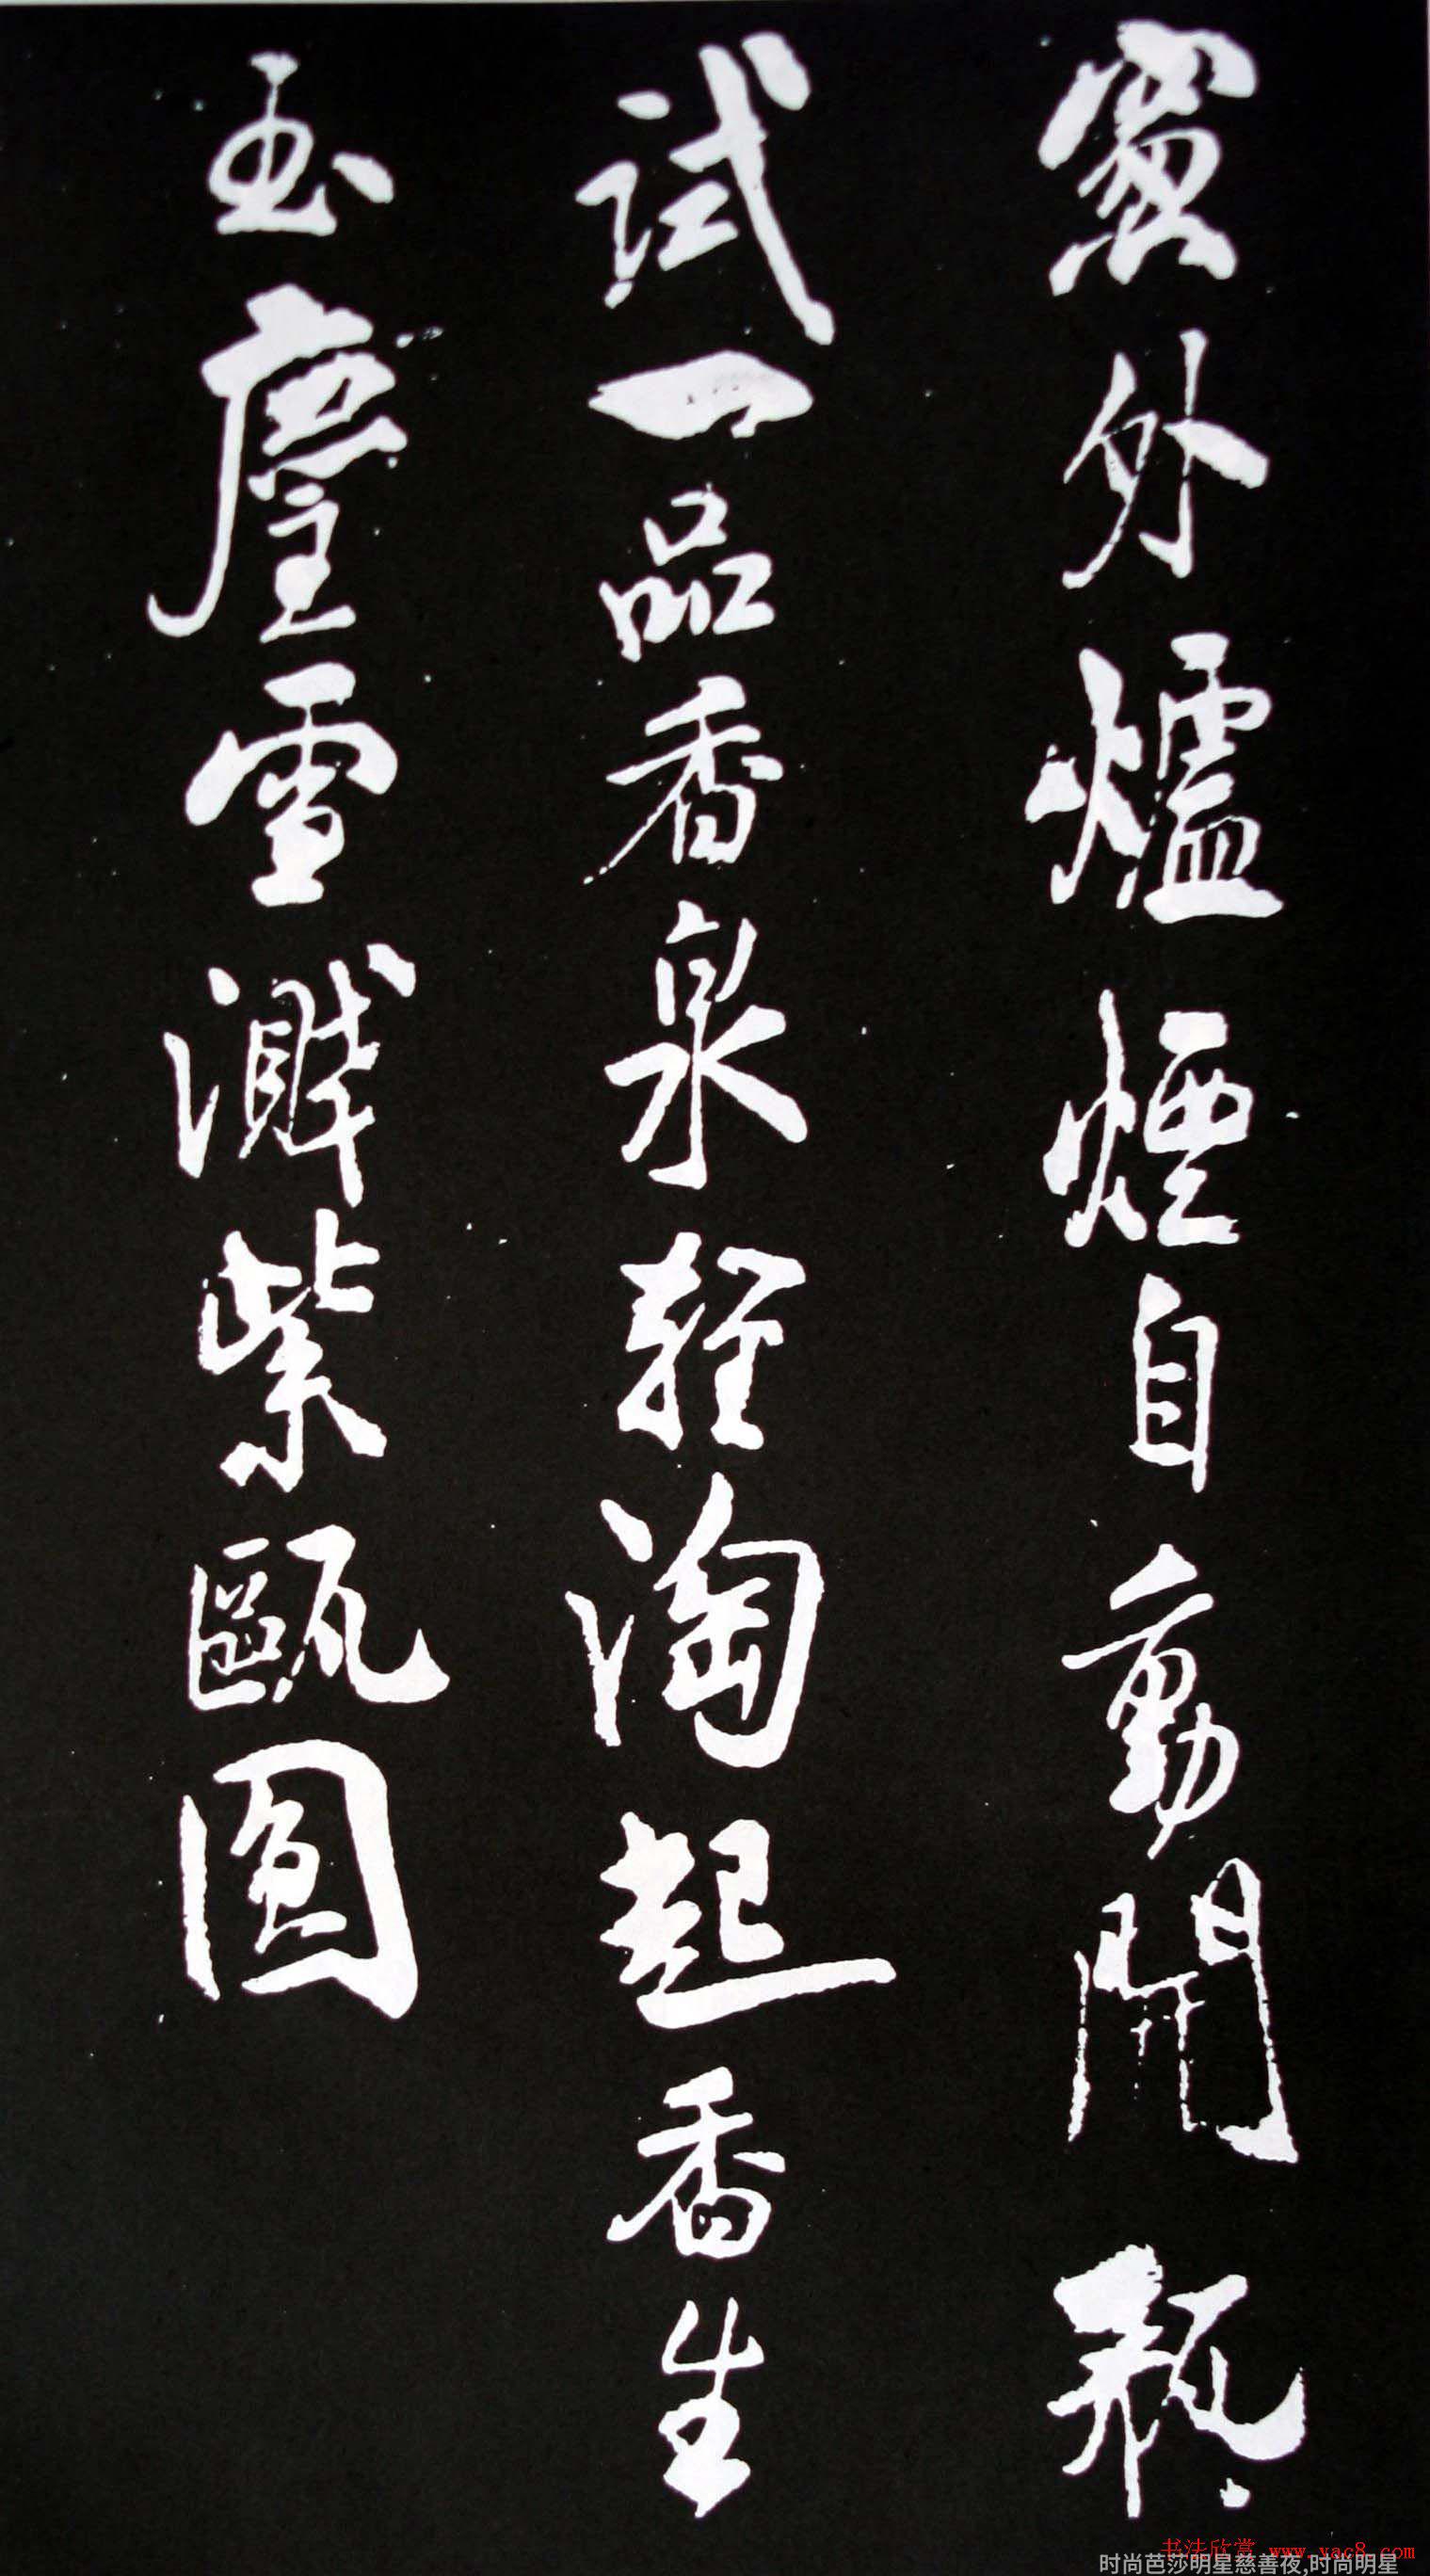 窗外爐煙自動開瓶
試一品香泉輕淘起香生
玉塵雪濺紫甌圓
书法欣赏 www.yac8.com
时尚芭莎明星慈善夜,时尚明星